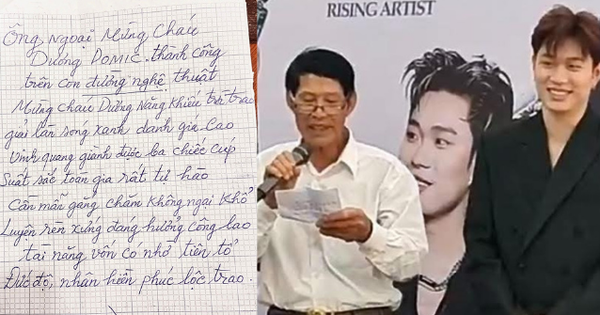 Ông Ngoại Mừng Cháu
Dương DOMIC. thành công
trên con đường nghệ thuật
Mừng Cháu Dương Năng Khiếu trỗi trao
giải làn sóng xanh danh giá Cao
Vinh quang giành được ba chiếc cúp
Suất sắc toàn gia rất tự hào
Cần mẫn gắng chăm không ngại khổ
Luyện rèn xứng đáng hưởng công lao
tài năng vốn có nhờ tiên tổ
Đức độ, nhân hiền phúc lộc trao.
RISING ARTIST